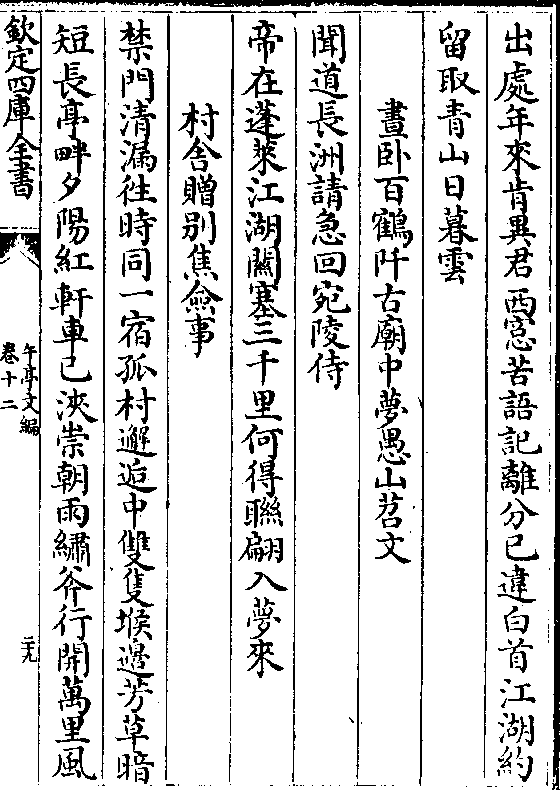 出處年來肯異君西窓苦語記離分已違白首江湖約
留取青山日暮雲
晝卧百鶴阡古廟中夢愚山苕文
聞道長洲請急回宛陵侍
帝在蓬萊江湖關塞三千里何得聯翩入夢來
村舍贈别焦僉事
禁門清漏徃時同一宿孤村邂逅中雙隻堠邉芳草暗
短長亭畔夕陽紅軒車已浹崇朝雨繡斧行開萬里風
欽定四庫全書
午亭文編
卷十二
二九